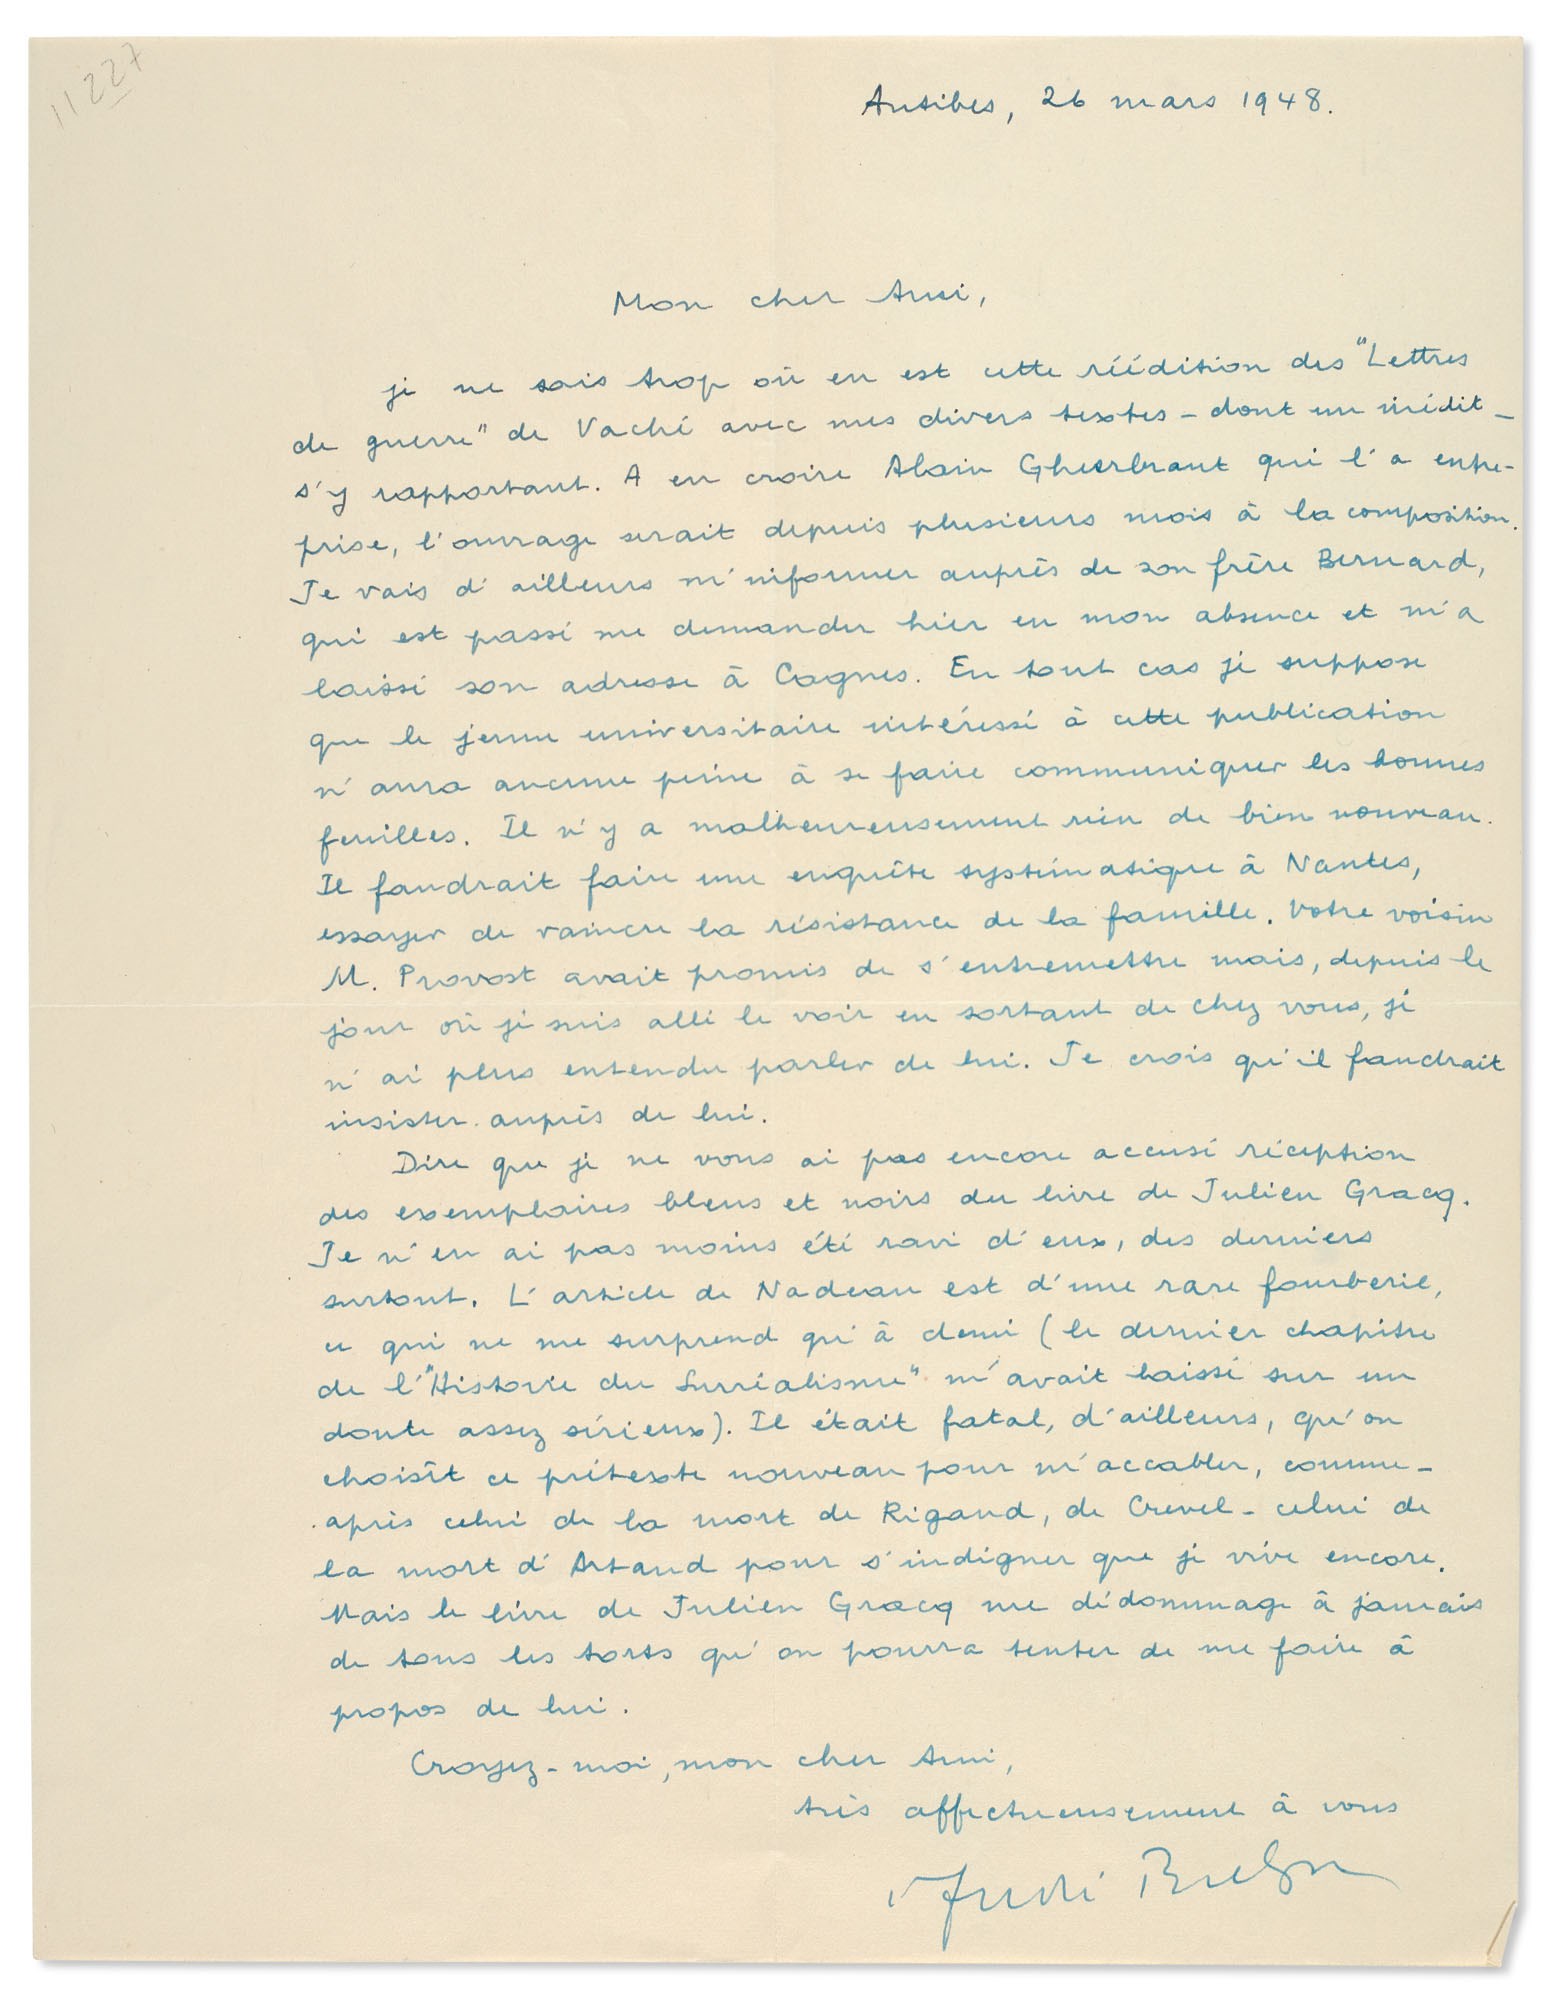 11227
Antibes, 26 mars 1948.
Mon cher Ami,
je ne sais trop où en est cette réédition des "Lettres
de guerre" de Vaché avec mes divers textes - dont un inédit -
s'y rapportant. A en croire Alain Gheerbrant qui l'a entre-
prise, l'ouvrage serait depuis plusieurs mois à la composition.
Je vais d'ailleurs m'informer auprès de son frère Bernard,
qui est passé me demander hier en mon absence et m'a
laissé son adresse à Cagnes. En tout cas je suppose
que le jeune universitaire intéressé à cette publication
n'aura aucune peine à se faire communiquer les bonnes
feuilles. Il n'y a malheureusement rien de bien nouveau.
Il faudrait faire une enquête systématique à Nantes,
essayer de vaincre la résistance de la famille. Votre voisin
M. Provost avait promis de s'entremettre mais, depuis le
jour où je suis allé le voir en sortant de chez vous, je
n'ai plus entendu parler de lui. Je crois qu'il faudrait
insister auprès de lui.
Dire que je ne vous ai pas encore accusé réception
des exemplaires bleus et noirs du livre de Julien Gracq.
Je n'en ai pas moins été ravi d'eux, des derniers
surtout. L'article de Nadeau est d'une rare fourberie,
ce qui ne me surprend qu'à demi (le dernier chapitre
de l'"Histoire du Surréalisme" m'avait laissé sur un
doute assez sérieux). Il était fatal, d'ailleurs, qu'on
choisît ce prétexte nouveau pour m'accabler, comme -
après celui de la mort de Rigaud, de Crevel - celui de
la mort d'Artaud pour s'indigner que je vive encore.
Mais le livre de Julien Gracq me dédommage à jamais
de tous les torts qu'on pourra tenter de me faire à
propos de lui.
Croyez-moi, mon cher Ami,
très affectueusement à vous
André Breton